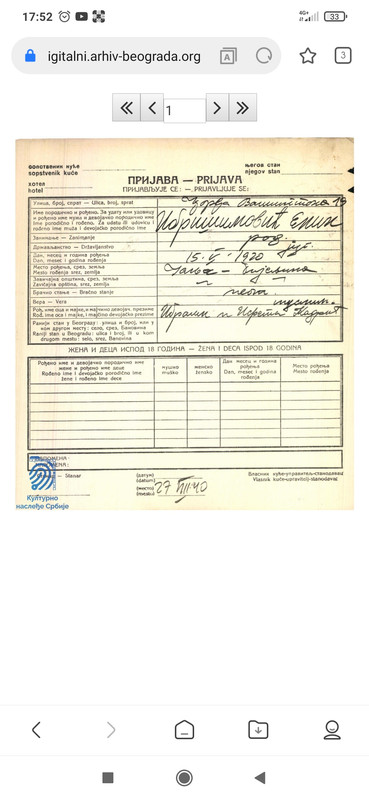 17:52
4G+
33
igitalni.arhiv-beograda.org
3
1
сопственик куће
sopstvenik kuće
његов стан
njegov stan
хотел
hotel
ПРИЈАВА — PRIJAVA
ПРИЈАВЉУЈЕ СЕ: — PRIJAVLJUJE SE:
Улица, број, спрат — Ulica, broj, sprat
Џорџа Вашингтона 19
Име породично и рођено. За удату или удовицу
и рођено име мужа и девојачко породично име
Ime porodično i rođeno. Za udatu ili udovicu i
rođeno ime muža i devojačko porodično ime
Ибришимовић
Занимање — Zanimanje
Држављанство — Državljanstvo
југ.
Дан, месец и година рођења
Dan, mesec i godina rođenja
15. 1920
Место рођења, срез, земља
Mesto rođenja, srez, zemlja
Завичајна општина, срез, земља
Zavičajna opština, srez, zemlja
Брачно стање — Bračno stanje
Вера — Vera
муслим.
Ранији стан у Београду: улица и број, или у
ком другом месту: село, срез, Бановина
Raniji stan u Beogradu: ulica i broj, ili u kom
drugom mestu: selo, srez, Banovina
Ибрахим и
ЖЕНА И ДЕЦА ИСПОД 18 ГОДИНА — ŽENA I DECA ISPOD 18 GODINA
Рођено име и девојачко породично име
жене и рођено име деце
Rođeno ime i devojačko porodično ime
žene i rođeno ime dece
мушко
muško
женско
žensko
Дан, месец и година
рођења
Dan, mesec i godina
rođenja
Место рођења
Mesto rođenja
— Stanar
(датум)
(datum)
(место)
(mesto)
27 VIII 40
Власник куће-управитељ-станодавац
Vlasnik kuće-upravitelj-stanodavac
Културно
наслеђе Србије